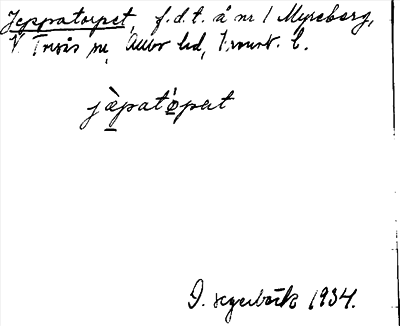 Jeppatorpet, f.d.t. å nr 1 Myreberg,
V Torsås sn, Allbo hd, Kronob. l.
jæ̀patǿpet
D. Segerbäck 1934.